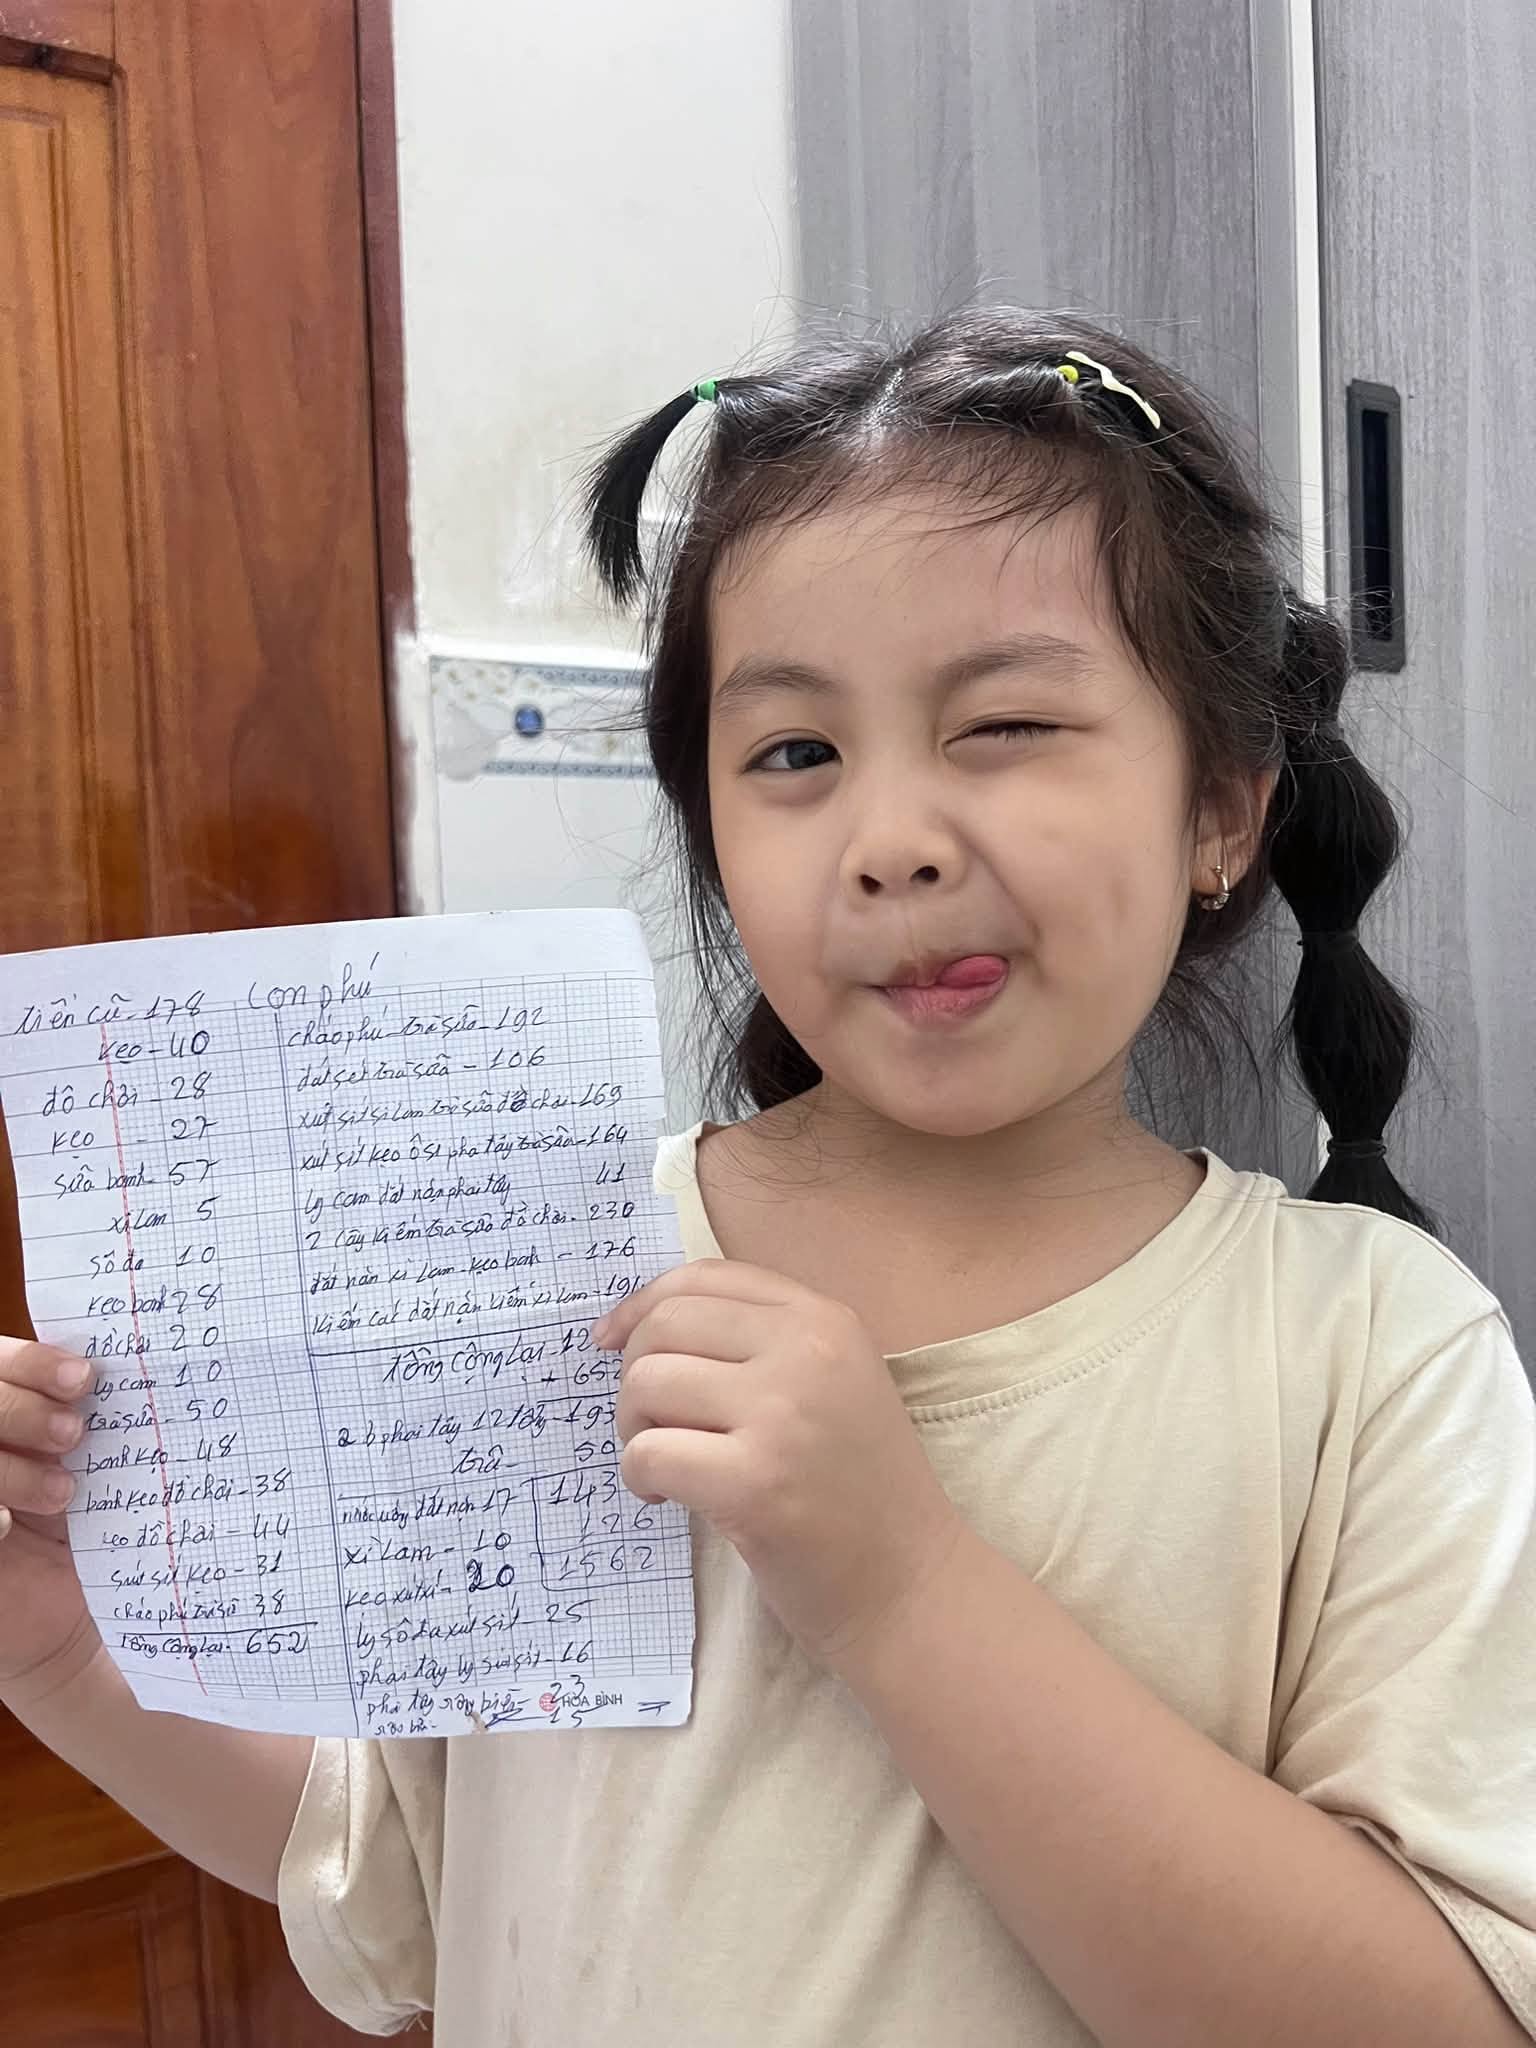 Con phú
tiền cũ - 178
kẹo - 40
đồ chơi - 28
kẹo - 27
sữa banh - 57
xi lam 5
sô đa 10
kẹo banh 28
đồ chơi 20
ly cam 10
trà sữa - 50
banh kẹo - 48
bánh kẹo đồ chơi - 38
kẹo đồ chơi - 44
sút sít kẹo - 31
cháo phú trà sữa 38
tổng cộng lại - 652
cháo phú trà sữa - 192
đất sét trà sữa - 106
xút sít si lam trà sữa đồ chơi - 169
xút sít kẹo ô si pha tây trà sữa - 164
ly cam đất nặn phai tây 41
2 cây kiếm trà sữa đồ chơi - 230
đất nặn xi lam - kẹo banh - 176
kiếm cát đất nặn kiếm xi lam - 191
tổng cộng lại - 12
+ 652
2 b phai tây 12 - 193
trả - 50
143
126
1562
nước uống đất nặn 17
xi lam - 10
kẹo xí xí - 20
ly sô đa xút sít - 25
phai tây ly sút sít - 16
pha tây rau biển - 23
HÒA BÌNH
15